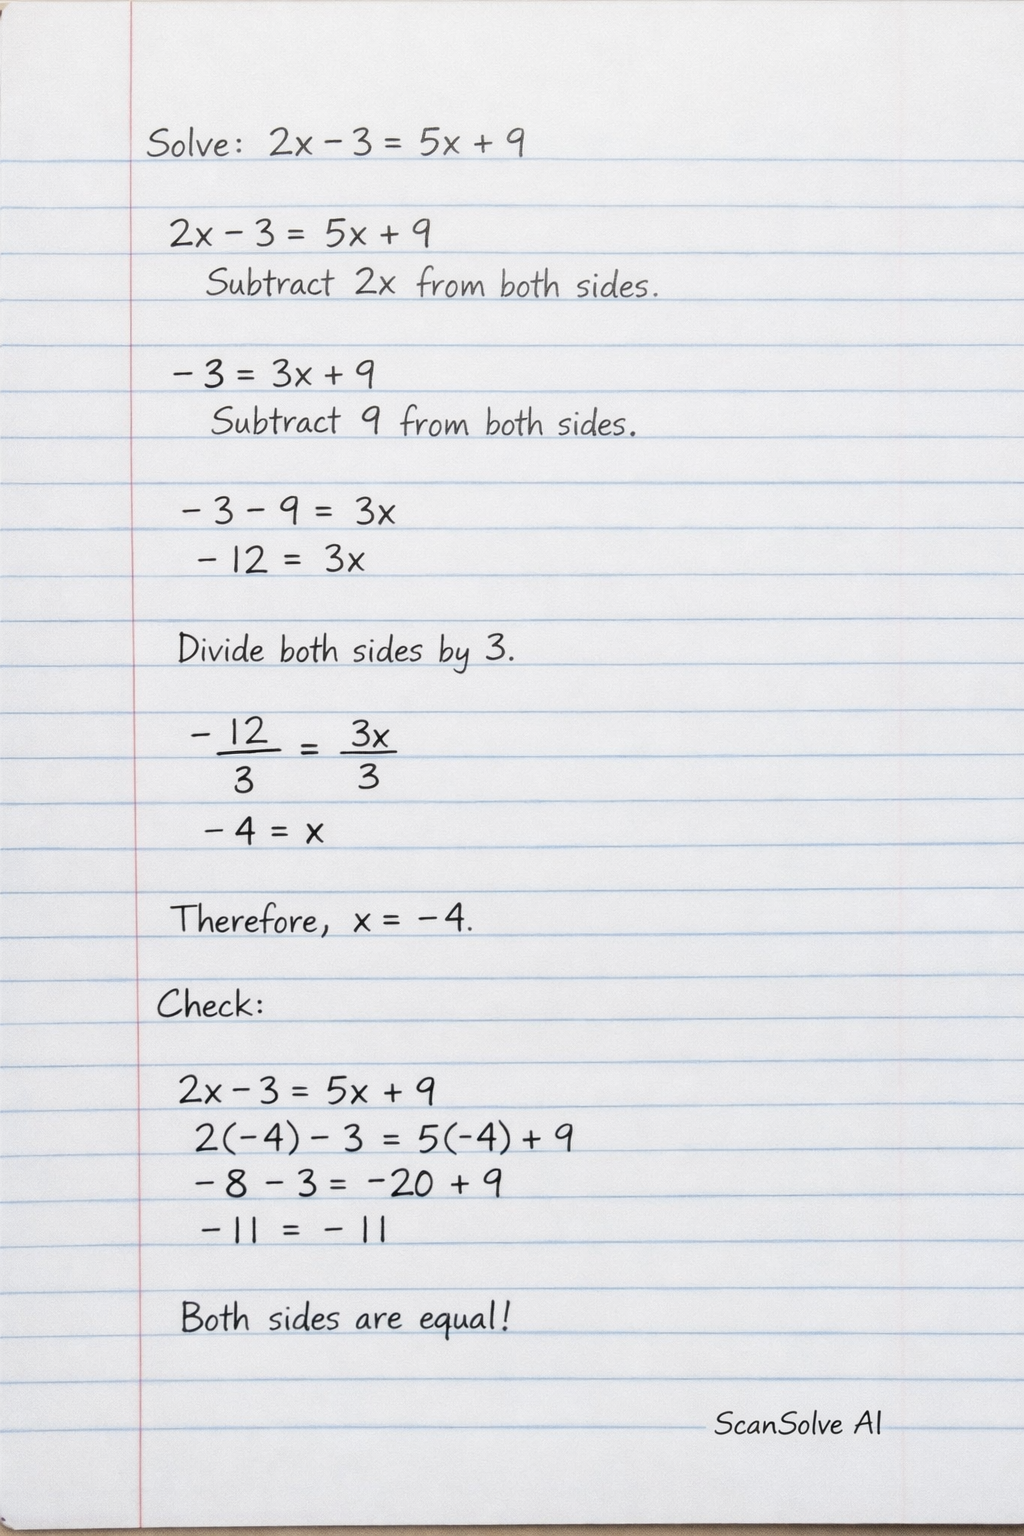 Solve: 2x - 3 = 5x + 9
2x - 3 = 5x + 9
Subtract 2x from both sides.
- 3 = 3x + 9
Subtract 9 from both sides.
- 3 - 9 = 3x
- 12 = 3x
Divide both sides by 3.
- 12/3 = 3x/3
- 4 = x
Therefore, x = -4.
Check:
2x - 3 = 5x + 9
2(-4) - 3 = 5(-4) + 9
- 8 - 3 = -20 + 9
- 11 = - 11
Both sides are equal!
ScanSolve AI